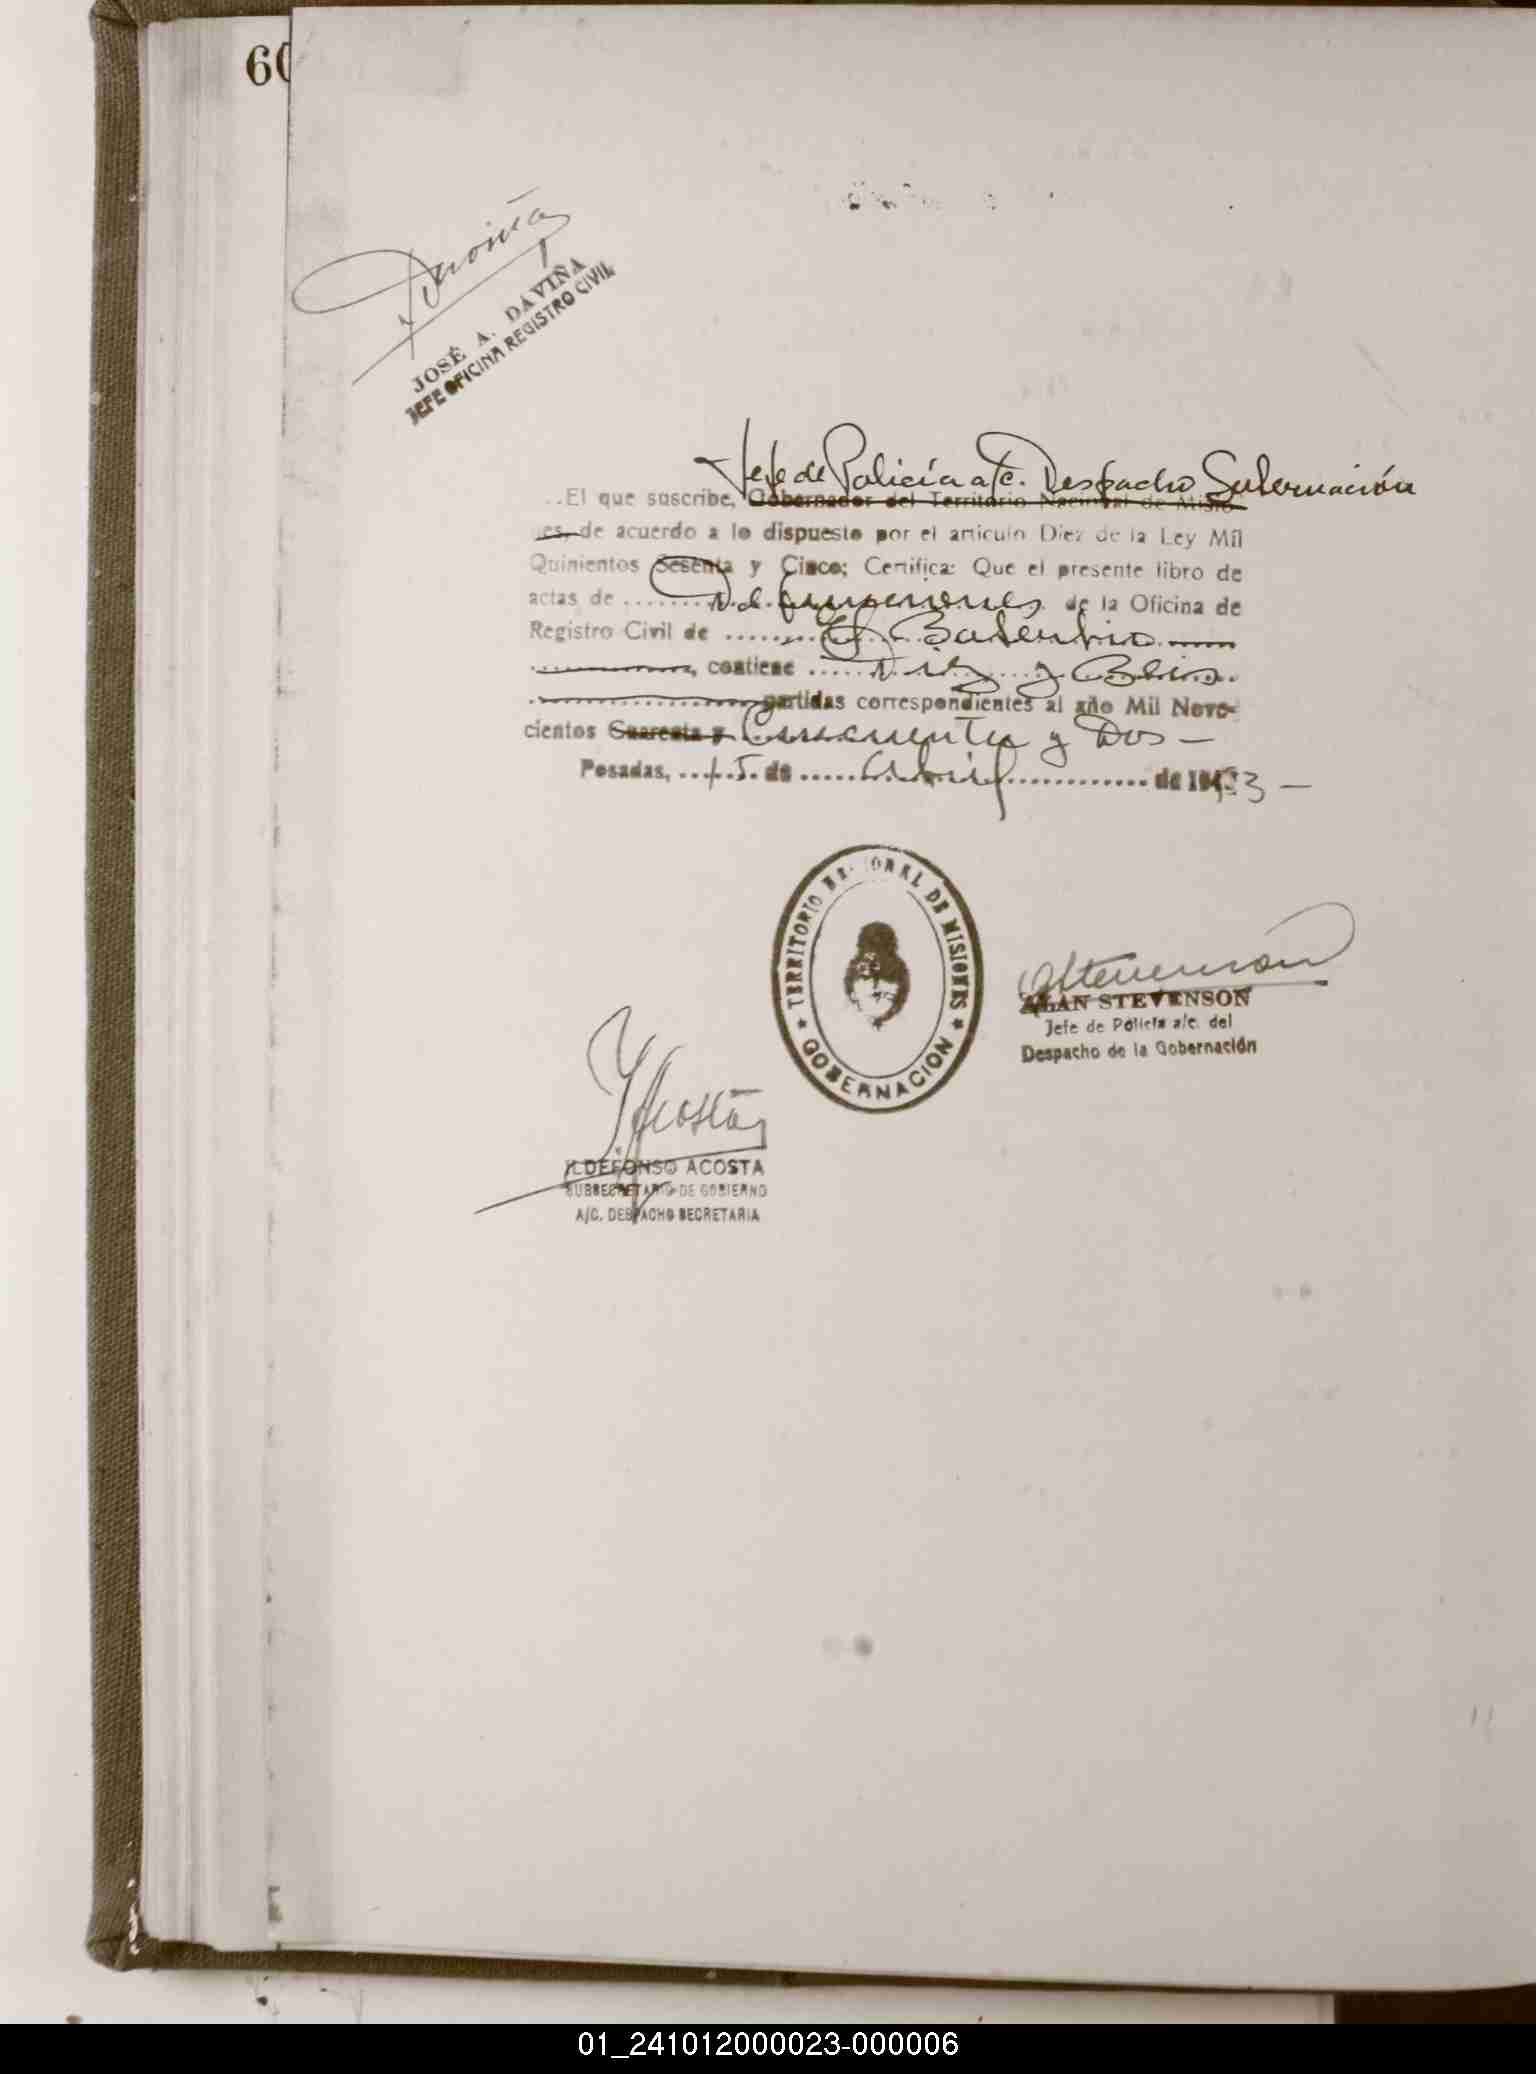 60
Daviña
JOSÉ A. DAVIÑA
JEFE OFICINA REGISTRO CIVIL
Jefe de Policía a/c. Despacho Gobernación
..El que suscribe, Gobernador del Territorio Nacional de Misio-
nes, de acuerdo a lo dispuesto por el artículo Diez de la Ley Mil
Quinientos Sesenta y Cinco; Certifica: Que el presente libro de
actas de ........ Defunciones de la Oficina de
Registro Civil de ........
, contiene ...... Diez y
partidas correspondientes al año Mil Nove-
cientos Cuarenta y Cincuenta y Dos —
Posadas, ...15. de ..... Abril ............ de 1953 —
TERRITORIO NACIONAL DE MISIONES
★ GOBERNACION ★
AStevenson
ALAN STEVENSON
Jefe de Policía a/c. del
Despacho de la Gobernación
YAcosta
ILDEFONSO ACOSTA
SUBSECRETARIO DE GOBIERNO
A/C. DESPACHO SECRETARIA
01_241012000023-000006